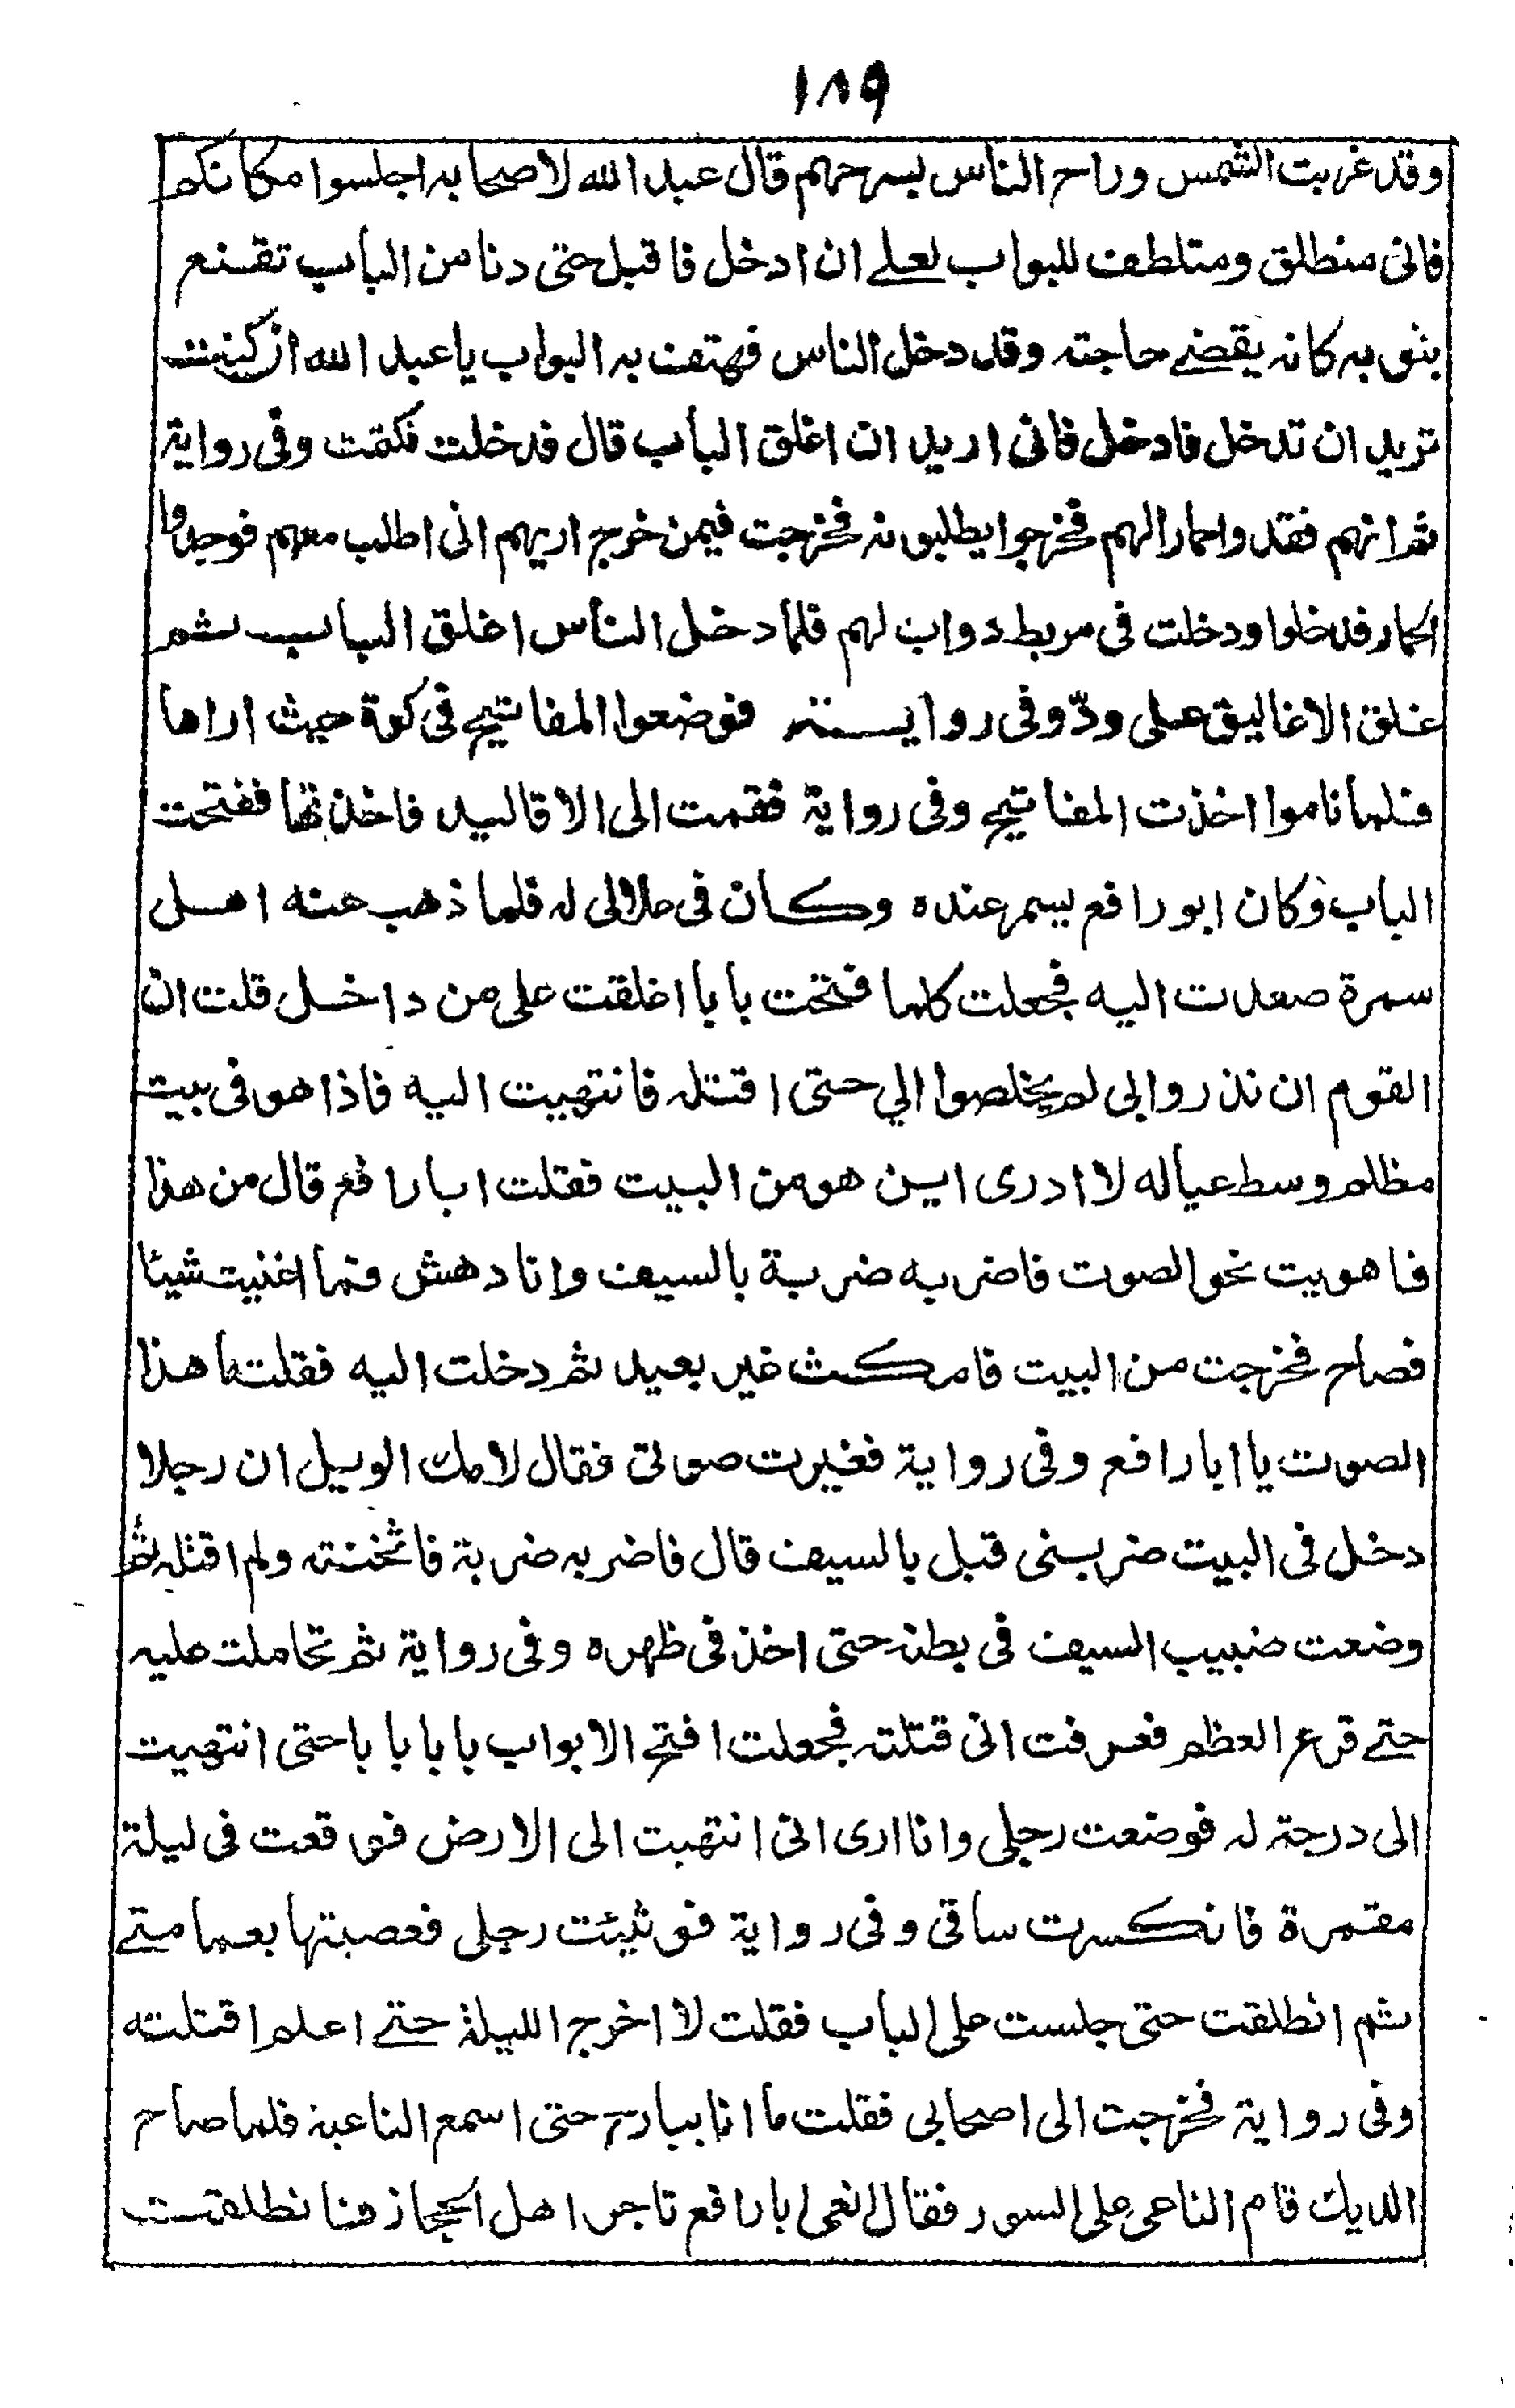 ١٨٩
وقد غربت الشمس وراح الناس بسرحهم قال عبد الله لاصحابه اجلسوا مكانكم
فانى منطلق ومتلطف للبواب لعلے ان ادخل فاقبل حتى دنا من الباب تقنع
بثوبه كانه يقضے حاجته وقد دخل الناس فهتف به البواب يا عبد الله ان كنت
تريد ان تدخل فادخل فانى اريد ان اغلق الباب قال فدخلت فكمنت وفى رواية
ثم انهم فقدوا حمارا لهم فخرجوا يطلبونه فخرجت فيمن خرج اريهم انى اطلب معهم فوجدوا
الحمار فدخلوا ودخلت فى مربط دواب لهم فلما دخل الناس اغلق الباب ثم
غلق الاغاليق على ودّ وفى رواية فوضعوا المفاتيح فى كوة حيث اراها
فلما ناموا اخذت المفاتيح وفى رواية فقمت الى الاقاليد فاخذتها ففتحت
الباب وكان ابو رافع يسمر عنده وكان فى علالى له فلما ذهب عنه اهل
سمرة صعدت اليه فجعلت كلما فتحت بابا اغلقت على من داخل قلت ان
القوم ان نذروا بى لم يخلصوا الي حتى اقتله فانتهيت اليه فاذا هو فى بيت
مظلم وسط عياله لا ادرى اين هو من البيت فقلت ابا رافع قال من هذا
فاهويت نحو الصوت فاضربه ضربة بالسيف وانا دهش فما اغنيت شيئا
فصاح فخرجت من البيت فامكث غير بعيد ثم دخلت اليه فقلت ما هذا
الصوت يا ابا رافع وفى رواية فغيرت صوتى فقال لامك الويل ان رجلا
دخل فى البيت ضربنى قبل بالسيف قال فاضربه ضربة فاثخنته ولم اقتله ثم
وضعت ضبيب السيف فى بطنه حتى اخذ فى ظهره وفى رواية ثم تحاملت عليه
حتے قرع العظم فعرفت انى قتلته فجعلت افتح الابواب بابا بابا حتى انتهيت
الى درجة له فوضعت رجلى وانا ارى انى انتهيت الى الارض فوقعت فى ليلة
مقمرة فانكسرت ساقى وفى رواية فوثيئت رجلى فعصبتها بعمامتے
ثم انطلقت حتى جلست على الباب فقلت لا اخرج الليلة حتے اعلم اقتلته
وفى رواية فخرجت الى اصحابى فقلت ما انا ببارح حتى اسمع الناعية فلما صاح
الديك قام الناعى على السور فقال انعى ابا رافع تاجر اهل الحجاز فانطلقت